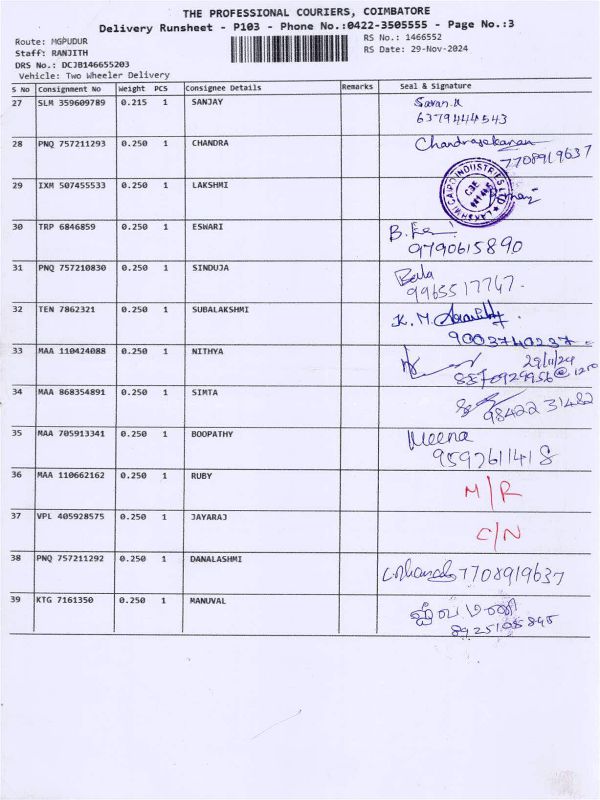 THE PROFESSIONAL COURIERS, COIMBATORE
Delivery Runsheet - P103 - Phone No.:0422-3505555 - Page No.:3
Route: MGPUDUR
RS No.: 1466552
Staff: RANJITH
RS Date: 29-Nov-2024
DRS No.: DCJB146655203
Vehicle: Two Wheeler Delivery
S No Consignment No Weight PCS Consignee Details Remarks Seal & Signature
27 SLM 359609789 0.215 1 SANJAY Saran.K
6379444543
28 PNQ 757211293 0.250 1 CHANDRA Chandrasekaran
7708919637
29 IXM 507455533 0.250 1 LAKSHMI
LAKSHMI CAIPO INDUSTRIES LTD
CBE
30 TRP 6846859 0.250 1 ESWARI
9790615890
31 PNQ 757210830 0.250 1 SINDUJA Bala
9965517747.
32 TEN 7862321 0.250 1 SUBALAKSHMI K.M.
9003740237
33 MAA 110424088 0.250 1 NITHYA 29/11/24
34 MAA 868354891 0.250 1 SIMTA
98422 31482
35 MAA 705913341 0.250 1 BOOPATHY Meena
9597611418
36 MAA 110662162 0.250 1 RUBY M/R
37 VPL 405928575 0.250 1 JAYARAJ C/N
38 PNQ 757211292 0.250 1 DANALASHMI 7708919637
39 KTG 7161350 0.250 1 MANUVAL